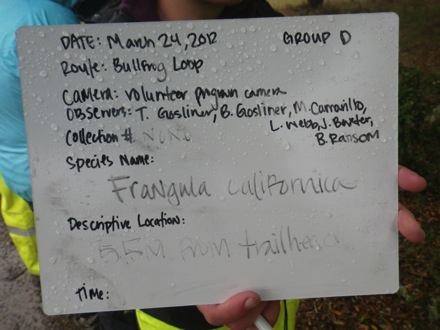 DATE: March 24, 2012 GROUP D
Route: Bullfrog Loop
Camera: volunteer program camera
Observers: T. Gosliner, B. Gosliner, M. Carrarillo,
L. Webb, J. Baxter,
B. Ransom
Collection #: NONE
Species Name:
Frangula californica
Descriptive Location:
55M from trailhead
Time: